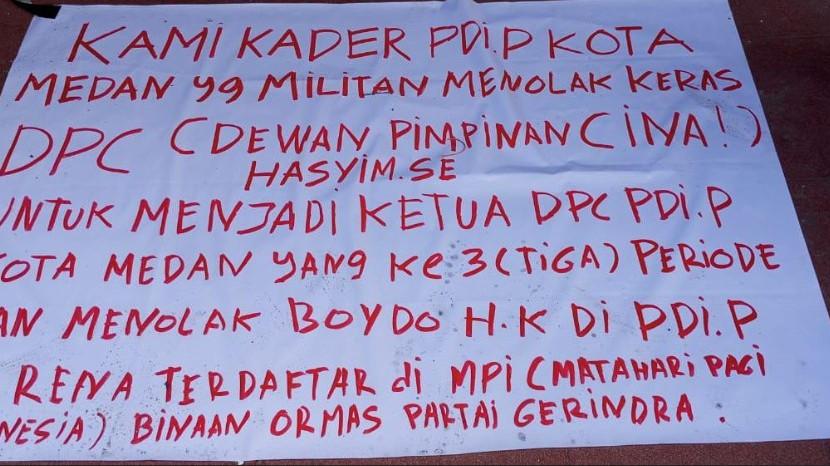 KAMI KADER PDI.P KOTA
MEDAN yg MILITAN MENOLAK KERAS
DPC (DEWAN PIMPINAN CINA!)
HASYIM.SE
UNTUK MENJADI KETUA DPC PDI.P
KOTA MEDAN YANG KE 3 (TIGA) PERIODE
AN MENOLAK BOYDO H.K DI PDI.P
RENA TERDAFTAR di MPI (MATAHARI PAGI
NESIA) BINAAN ORMAS PARTAI GERINDRA.